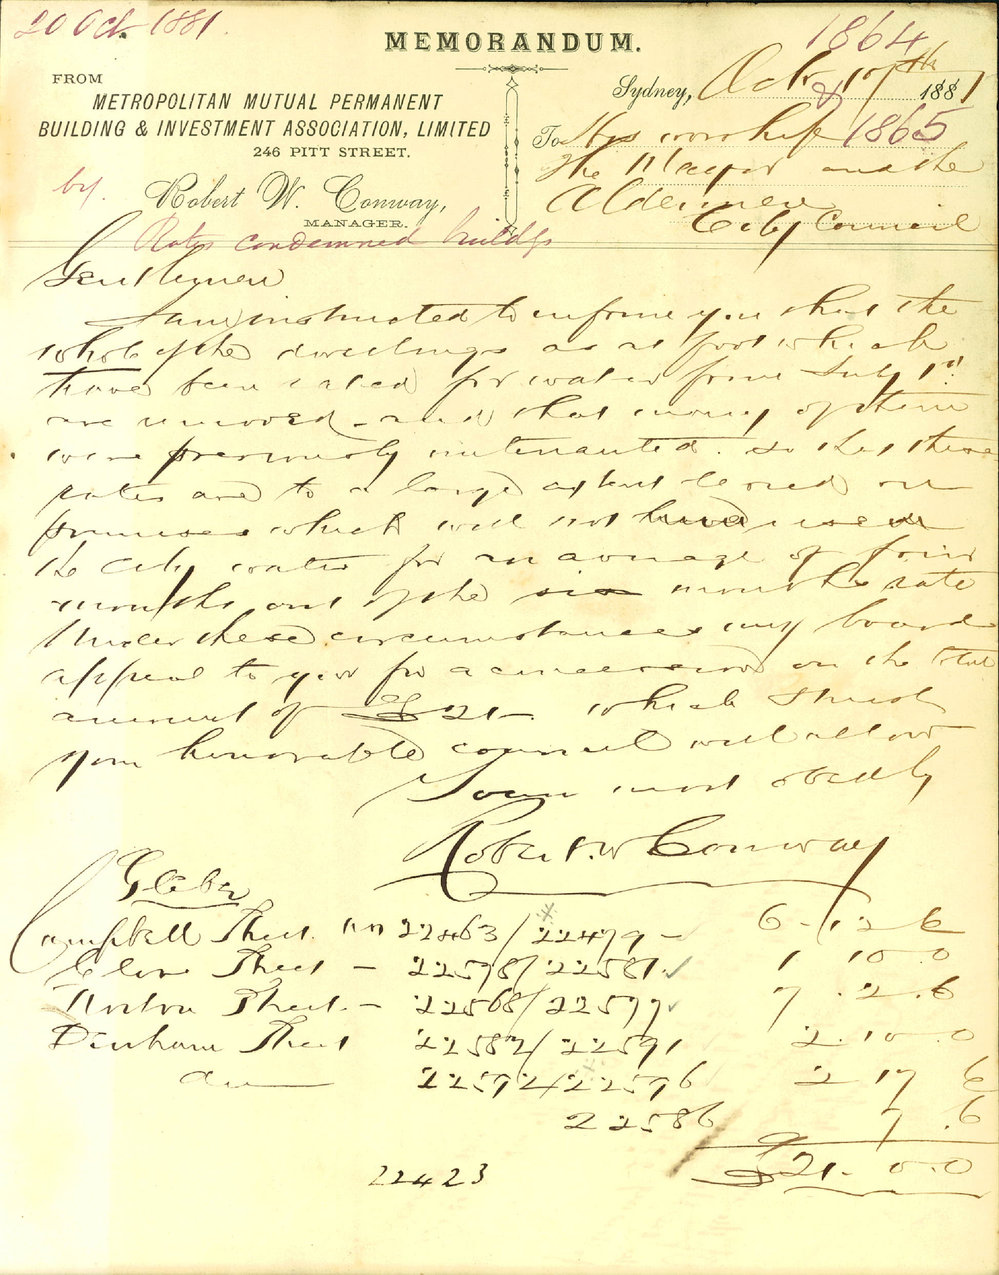 20 Oct. 1881.
MEMORANDUM.
1864
&
1865
FROM
METROPOLITAN MUTUAL PERMANENT
BUILDING & INVESTMENT ASSOCIATION, LIMITED
246 PITT STREET.
by. Robert W. Conway,
MANAGER.
Rates condemned buildgs
Sydney, Oct 17th 1881
To His worship
The Mayor and the
Aldermen
City Council
Gentlemen
I am instructed to inform you that the
whole of the dwellings as at foot which
have been rated for water from July 1st
are removed and that many of them
were previously untenanted. so that these
rates are to a large extent levied on
premises which will not have used
the city water for an average of four
months out of the six months rate
Under these circumstances my board
appeal to you for a concession on the total
amount of £21- which I trust
your honorable council will allow
Yours most obedtly
Robert. W Conway
Glebe
Campbell Street. 22463/22479 - 6-12 6
Elger Street - 22578/22581. 1 10 0
Norton Street. - 22568/22577 7. 2. 6
Denham Street 22587/22591 2. 10. 0
do 22592/22596 2 17 6
22586 7. 6
£21. 0. 0
22423